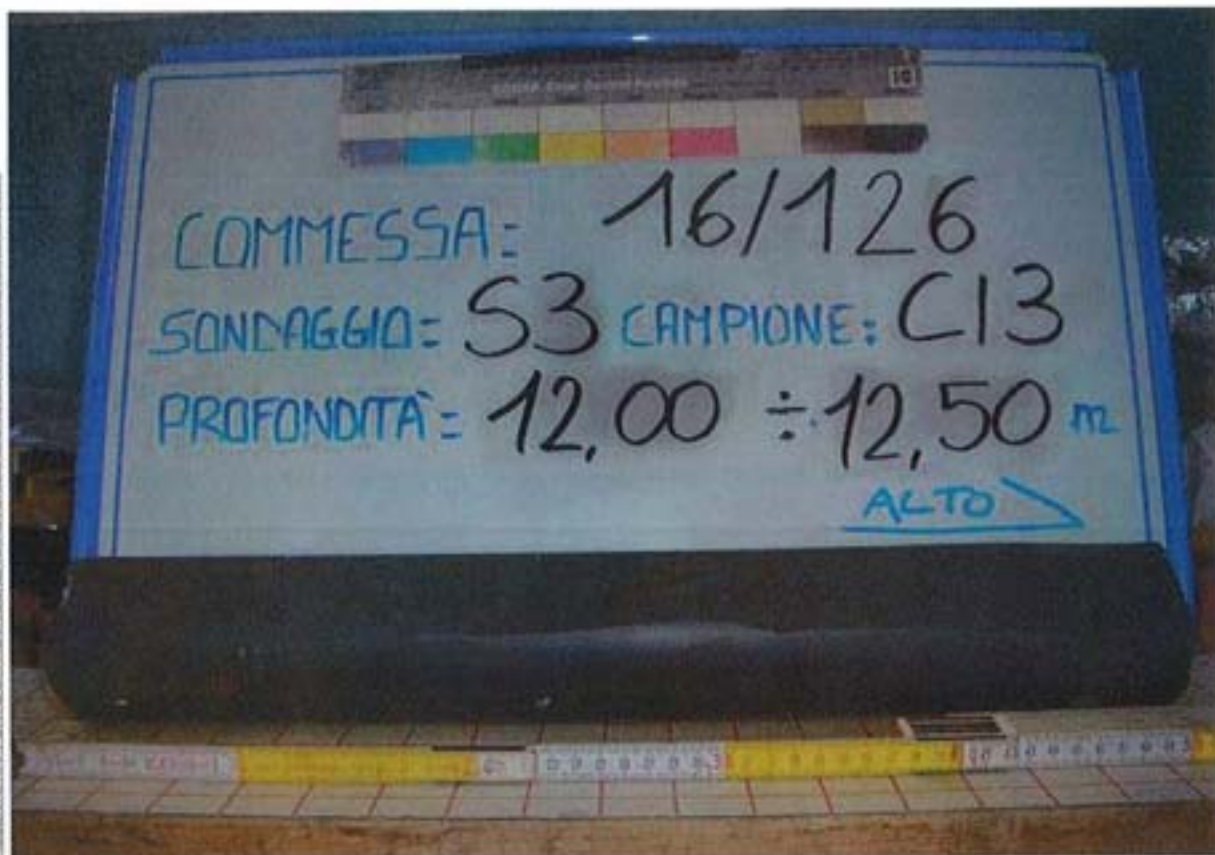 10
COMMESSA: 16/126
SONDAGGIO: S3 CAMPIONE: CI3
PROFONDITÀ: 12,00 ÷ 12,50 m
ALTO